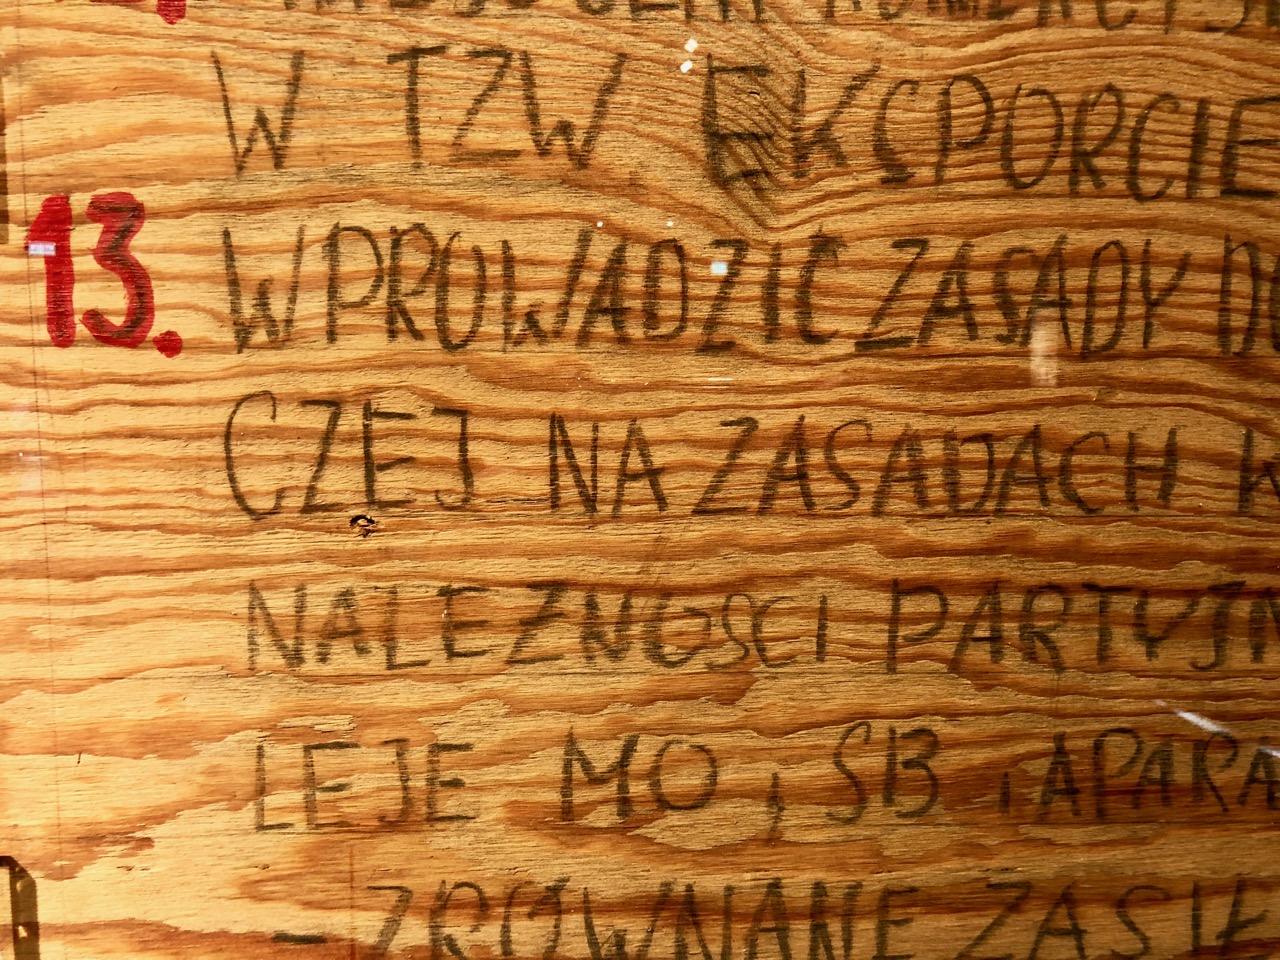 W TZW EKSPORCIE
13. WPROWADZIĆ ZASADY DO
CZEJ NA ZASADACH
NALEŻNOŚCI PARTYJN
LEJE MO, SB, APARA
- ZRÓWNANE ZASIŁ